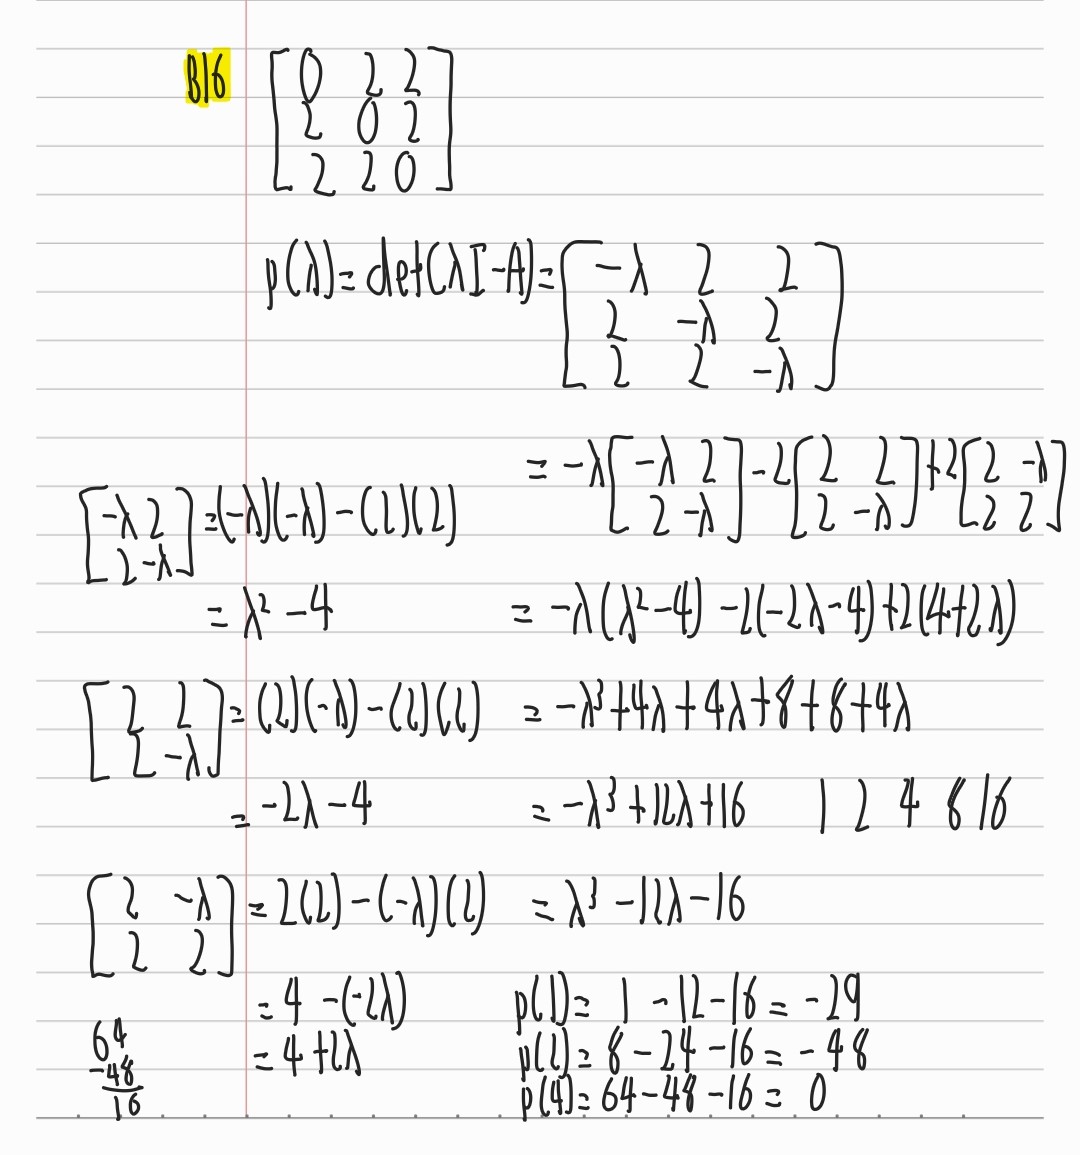 B16 [0 2 2
2 0 2
2 2 0]
p(λ) = det(λI-A) = [-λ 2 2
2 -λ 2
2 2 -λ]
= -λ[-λ 2 2 -λ] -2[2 2 2 -λ] +2[2 -λ 2 2]
[-λ 2 2 -λ] = (-λ)(-λ) - (2)(2)
= λ² - 4
= -λ(λ²-4) -2(-2λ-4) +2(4+2λ)
[2 2 2 -λ] = (2)(-λ) - (2)(2)
= -λ³+4λ+4λ+8+8+4λ
= -2λ-4
= -λ³+12λ+16 1 2 4 8 16
[2 -λ 2 2] = 2(2) - (-λ)(2)
= λ³ -12λ -16
= 4 -(-2λ)
= 4+2λ
p(1) = 1 -12 -16 = -29
p(2) = 8 -24 -16 = -48
p(4) = 64 -48 -16 = 0
64
-48
16